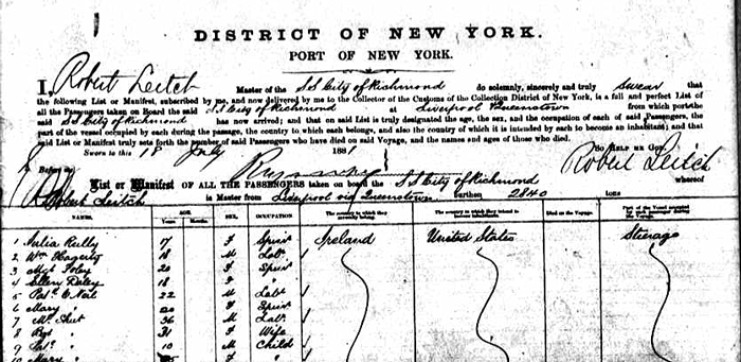 DISTRICT OF NEW YORK.
PORT OF NEW YORK.
I, Robert Leitch Master of the SS City of Richmond do solemnly, sincerely and truly swear that
the following List or Manifest, subscribed by me, and now delivered by me to the Collector of the Customs of the Collection District of New York, is a full and perfect List of
all the Passengers taken on Board the said SS City of Richmond at Liverpool Queenstown from which port the
said SS City of Richmond has now arrived; and that on said List is truly designated the age, the sex, and the occupation of each of said Passengers, the
part of the vessel occupied by each during the passage, the country to which each belongs, and also the country of which it is intended by each to become an inhabitant; and that
said List or Manifest truly sets forth the number of said Passengers who have died on said Voyage, and the names and ages of those who died.
So HELP ME GOD.
Sworn to this 18 July 1881 Robert Leitch
Before
List or Manifest OF ALL THE PASSENGERS taken on board the SS City of Richmond whereof
Robert Leitch is Master from Liverpool via Queenstown burthen 2840 tons
NAMES. AGE. Years Months SEX. OCCUPATION The country to which they severally belong. The country to which they intend to Died on the Voyage. Part of the Vessel occupied by each passenger during the Voyage.
1 Julia Reilly 17 F Spinr Ireland United States Steerage
2 Wm Hagerty 18 M Labr
3 Mgt Foley 20 F Spinr
4 Ellen Daley 18 F "
5 Patk O'Neil 22 M Labr
6 Mary " 20 F Spinr
7 36 M Labr
8 " 31 F Wife
9 " 10 M Child
10 Mary " F "